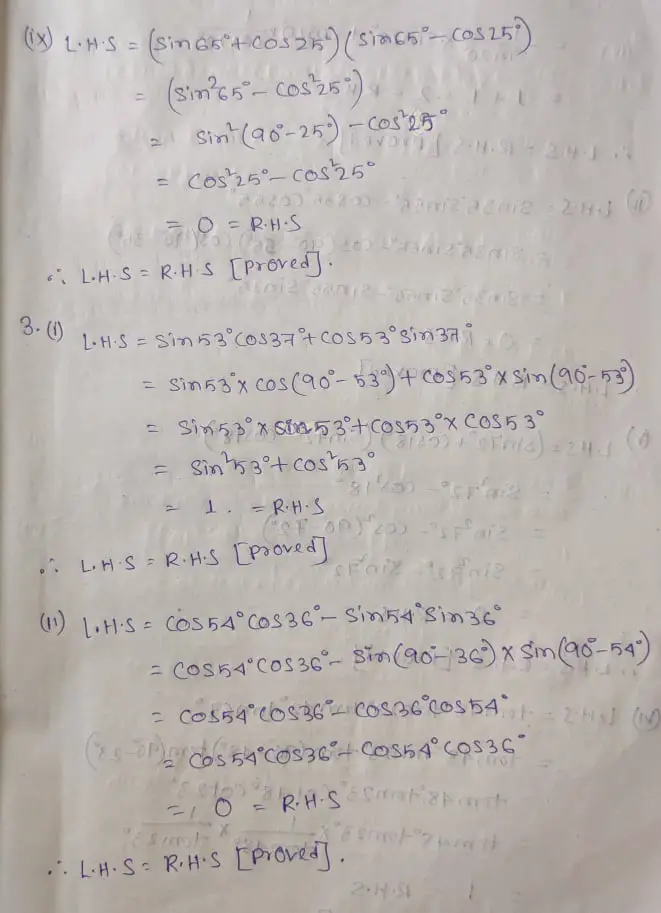 (ix) L.H.S = (sin65°+cos25°)(sin65°-cos25°)
= (sin²65°-cos²25°)
= sin²(90°-25°)-cos²25°
= cos²25°-cos²25°
= 0 = R.H.S
∴ L.H.S = R.H.S [proved].
3. (i) L.H.S = sin53°cos37°+cos53°sin37°
= sin53°×cos(90°-53°)+cos53°×sin(90°-53°)
= sin53°×sin53°+cos53°×cos53°
= sin²53°+cos²53°
= 1. = R.H.S
∴ L.H.S = R.H.S [proved]
(ii) L.H.S = cos54°cos36°-sin54°sin36°
= cos54°cos36°-sin(90°-36°)×sin(90°-54°)
= cos54°cos36°-cos36°cos54°
= cos54°cos36°-cos54°cos36°
= 0 = R.H.S
∴ L.H.S = R.H.S [proved].